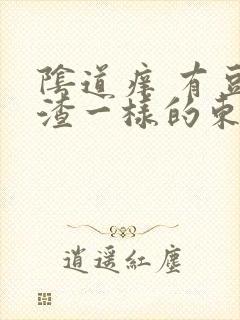 陰道癢 有豆
渣一樣的東
逍遥紅塵